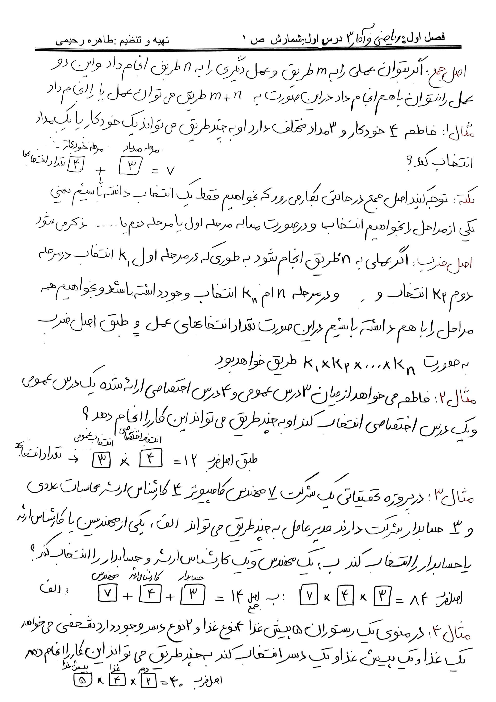 فصل اول: ریاضی و آمار ۳ درس اول: شمارش ص ۱ تهیه و تنظیم: طاهره رحیمی
اصل جمع: اگر بتوان عملی را به m طریق و عمل دیگری را به n طریق انجام داد و این دو
عمل را نتوان با هم انجام داد در این صورت به m+n طریق می توان عمل را انجام داد
مثال ۱: فاطمه ۴ خودکار و ۳ مداد مختلف دارد او به چند طریق می تواند یک خودکار یا یک مداد
انتخاب کند؟
تعداد انتخابها ۴ + ۳ = ۷
نکته: توجه کنید اصل جمع در حالتی بکار می رود که بخواهیم فقط یک انتخاب داشته باشیم یعنی
یکی از مراحل را بخواهیم انتخاب و در صورت مساله مرحله اول یا مرحله دوم یا ..... ذکر می شود
اصل ضرب: اگر عملی به n طریق انجام شود به طوری که در مرحله اول k₁ انتخاب در مرحله
دوم k₂ انتخاب و ... و در مرحله n ام kₙ انتخاب وجود داشته باشد و بخواهیم همه
مراحل را با هم داشته باشیم در این صورت تعداد انتخابهای عمل و طبق اصل ضرب
به صورت k₁×k₂×...×kₙ طریق خواهد بود
مثال ۲: فاطمه می خواهد از میان ۳ درس عمومی و ۴ درس اختصاصی ارائه شده یک درس عمومی
و یک درس اختصاصی انتخاب کند او به چند طریق می تواند این کار را انجام دهد؟
طبق اصل ضرب ۳ × ۴ = ۱۲ → تعداد انتخاب
مثال ۳: در پروژه تحقیقاتی یک شرکت ۷ مهندس کامپیوتر ۴ کارشناس ارشد محاسبات عددی
و ۳ حسابدار شرکت دارند مدیر عامل به چند طریق می تواند الف، یکی از مهندسین یا کارشناس ارشد
یا حسابدار را انتخاب کند ب، یک مهندس و یک کارشناس ارشد و حسابدار را انتخاب کند؟
الف: ۷ + ۴ + ۳ = ۱۴ اصل جمع ب: ۷ × ۴ × ۳ = ۸۴ اصل ضرب
مثال ۴: در منوی یک رستوران ۵ پیش غذا ۴ نوع غذا و ۲ نوع دسر وجود دارد شخصی می خواهد
یک غذا و یک پیش غذا و یک دسر انتخاب کند به چند طریق می تواند این کار را انجام دهد
۵ × ۴ × ۲ = ۴۰ اصل ضرب